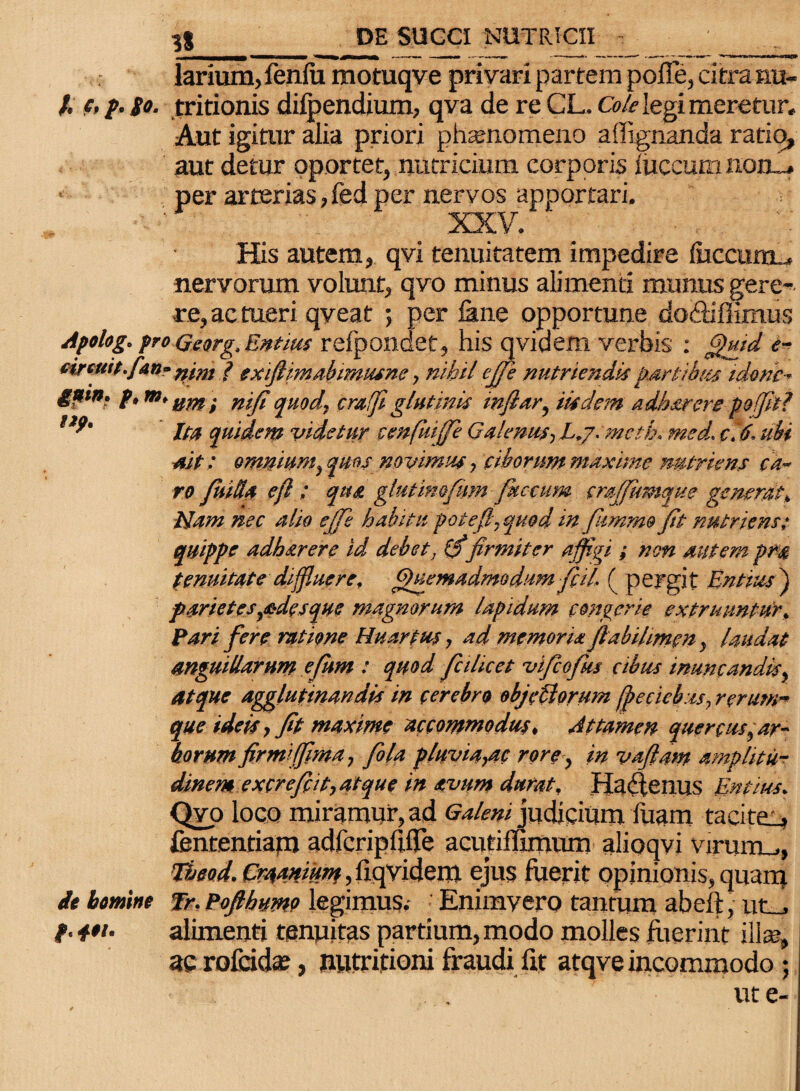 38 DE SUCCI NUTRICII
larium, ſenſu motuqve privari partem poſſe, citra nu-
l. c. p. 80. tritionis diſpendium, qva de re CL. Cole legi meretur.
Aut igitur alia priori phænomeno aſſignanda ratio,
aut detur oportet, nutricium corporis ſuccum non
per arterias, ſed per nervos apportari.
XXV.
His autem, qvi tenuitatem impedire ſuccum
nervorum volunt, qvo minus alimenti munus gere-
re, ac tueri qveat ; per ſane opportune doctiſſimus
Apolog. pro Georg. Entius reſpondet, his qvidem verbis : Quid e-
circuit. ſan- nim ? exiſtimabimusne, nihil eſſe nutriendis partibus idone-
guin. p. m. um ; niſi quod, craſſi glutinis inſtar, iisdem adhærere poſſit?
129. Ita quidem videtur cenſuiſſe Galenus, L.7. meth. med. c. 6. ubi
ait : omnium, quos novimus, ciborum maxime nutriens ca-
ro ſuilla eſt ; quæ glutinoſum ſuccum craſſumque generat.
Nam nec alio eſſe habitu poteſt, quod in ſummo ſit nutriens ;
quippe adhærere id debet, & firmiter affigi ; non autem præ
tenuitate diffluere. Quemadmodum ſcil. ( pergit Entius )
parietes, ædesque magnorum lapidum congerie extruuntur.
Pari fere ratione Huartus, ad memoriæ ſtabilimen, laudat
anguillarum eſum : quod ſcilicet viſcoſus cibus inuncandis,
atque agglutinandis in cerebro objectorum ſpeciebus, rerum-
que ideis, ſit maxime accommodus. Attamen quercus, ar-
borum firmiſſima, ſola pluvia, ac rore, in vaſtam amplitu-
dinem excreſcit, atque in ævum durat. Hactenus Entius.
Qvo loco miramur, ad Galeni judicium ſuam tacite
ſententiam adſcripſiſſe acutiſſimum alioqvi virum,
Theod. Craanium, ſiqvidem ejus fuerit opinionis, quam
de homine Tr. Poſthumo legimus. Enimvero tantum abeſt, ut
p. 401. alimenti tenuitas partium, modo molles fuerint illæ,
ac roſcidæ, nutritioni fraudi ſit atqve incommodo ;
ut e-